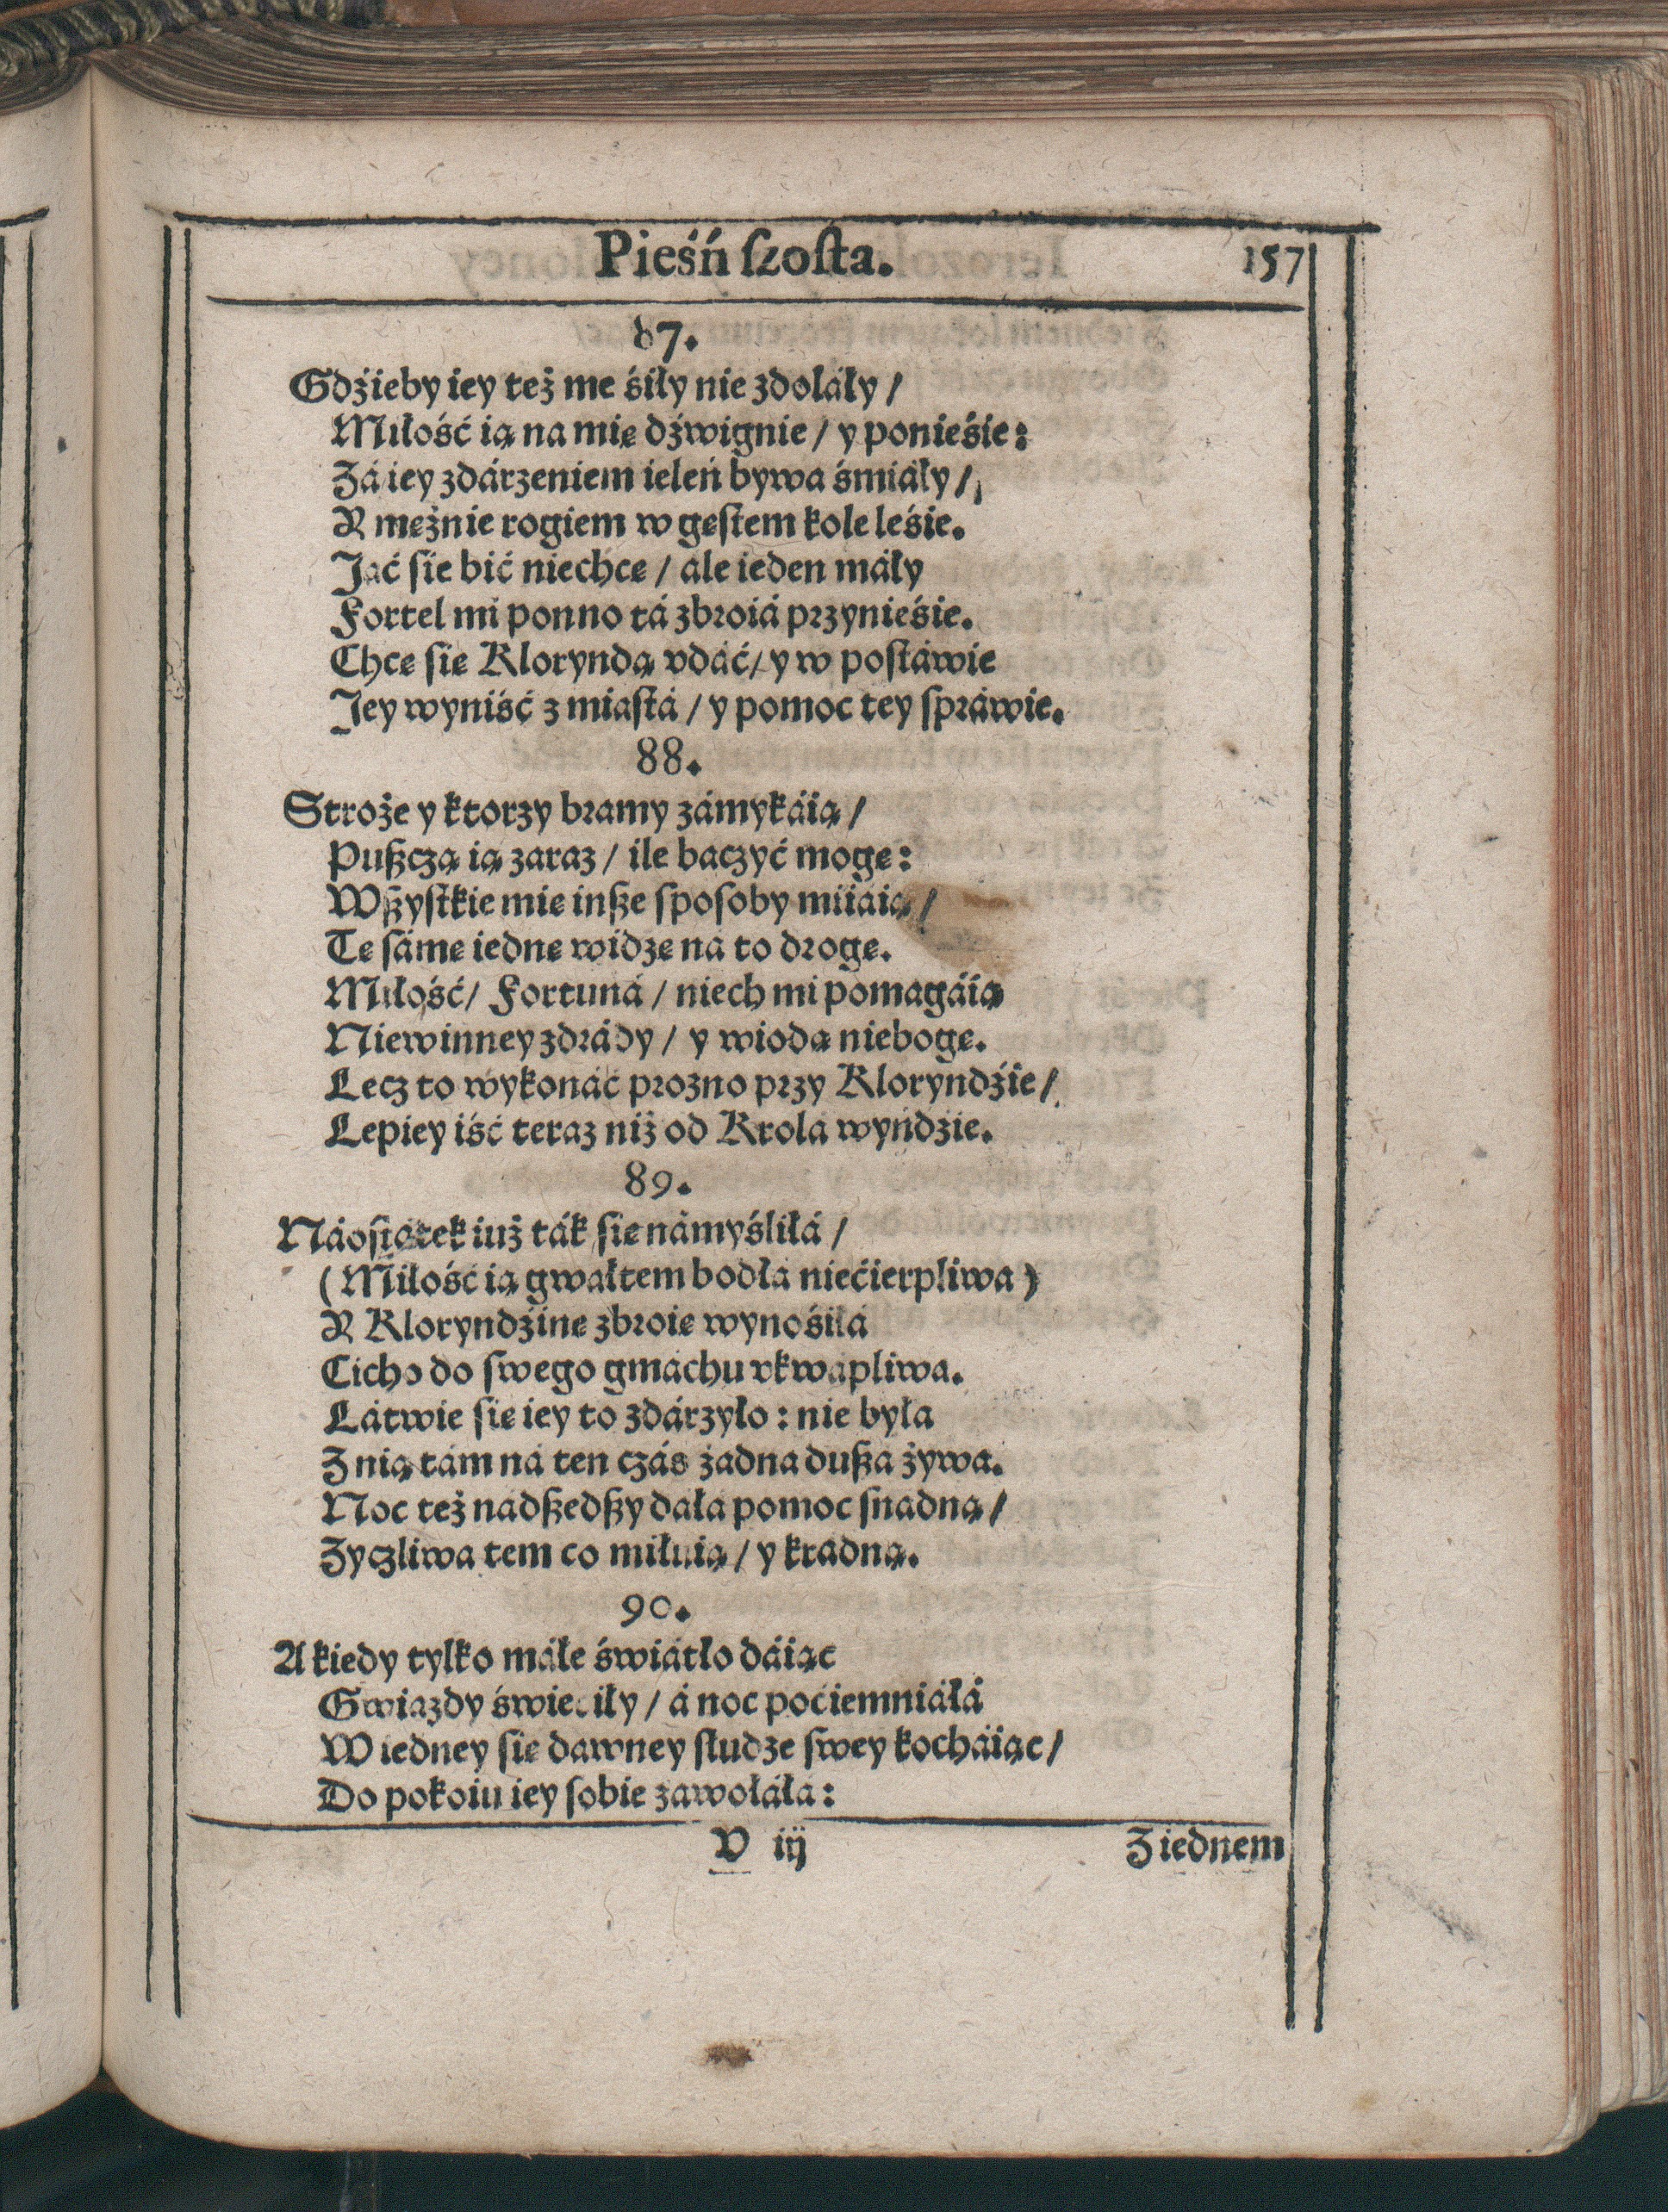 Pieśń ſzoſta.
157
87.
Gdźieby iey też me śiły nie zdołáły /
Miłość ią na mię dźwignie / y ponieśie:
Zá iey zdárzeniem ieleń bywa śmiáły /
Y mężnie rogiem w gęſtem kole leśie.
Jać ſie bić niechcę / ále ieden máły
Fortel mi ponno tá zbroiá przynieśie.
Chcę ſie Kloryndą vdáć / y w poſtáwie
Jey wyniść z miáſtá / y pomoc tey ſpráwie.
88.
Stroże y ktorzy bramy zámykáią /
Pußczą ią zaraz / ile baczyć mogę:
Wßyſtkie mie inße ſpoſoby miiaią /
Tę ſámę iednę widzę na to drogę.
Miłość / Fortuná / niech mi pomagáią
Niewinney zdrády / y wiodą niebogę.
Lecz to wykonáć prozno przy Kloryndźie /
Lepiey iść teraz niż od Krola wyńdźie.
89.
Náoſtátek iuż ták ſie námyśliłá /
(Miłość ią gwałtem bodłá niećierpliwa)
Y Kloryndźinę zbroię wynośiłá
Cicho do ſwego gmáchu vkwápliwa.
Látwie ſie iey to zdárzyło: nie byłá
Z nią tám ná ten czás żadna dußa żywa.
Noc też nadßedßy dała pomoc ſnadną /
Zyczliwa tem co miłuią / y kradną.
90.
A kiedy tylko máłe świátło dáiąc
Gwiazdy świeciły / á noc poćiemniáłá
W iedney ſie dawney ſłudze ſwey kocháiąc /
Do pokoiu iey ſobie záwołáłá:
V iij
Z iednem